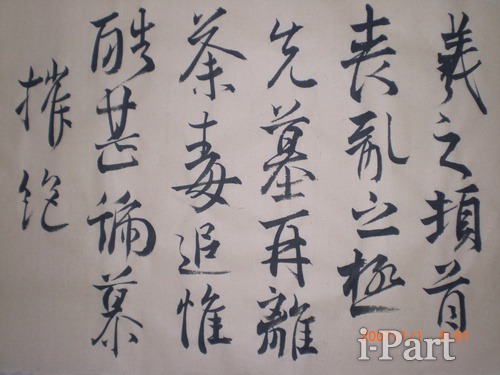 羲之頓首
喪亂之極
先墓再離
荼毒追惟
酷甚號慕
摧絶
i-Part